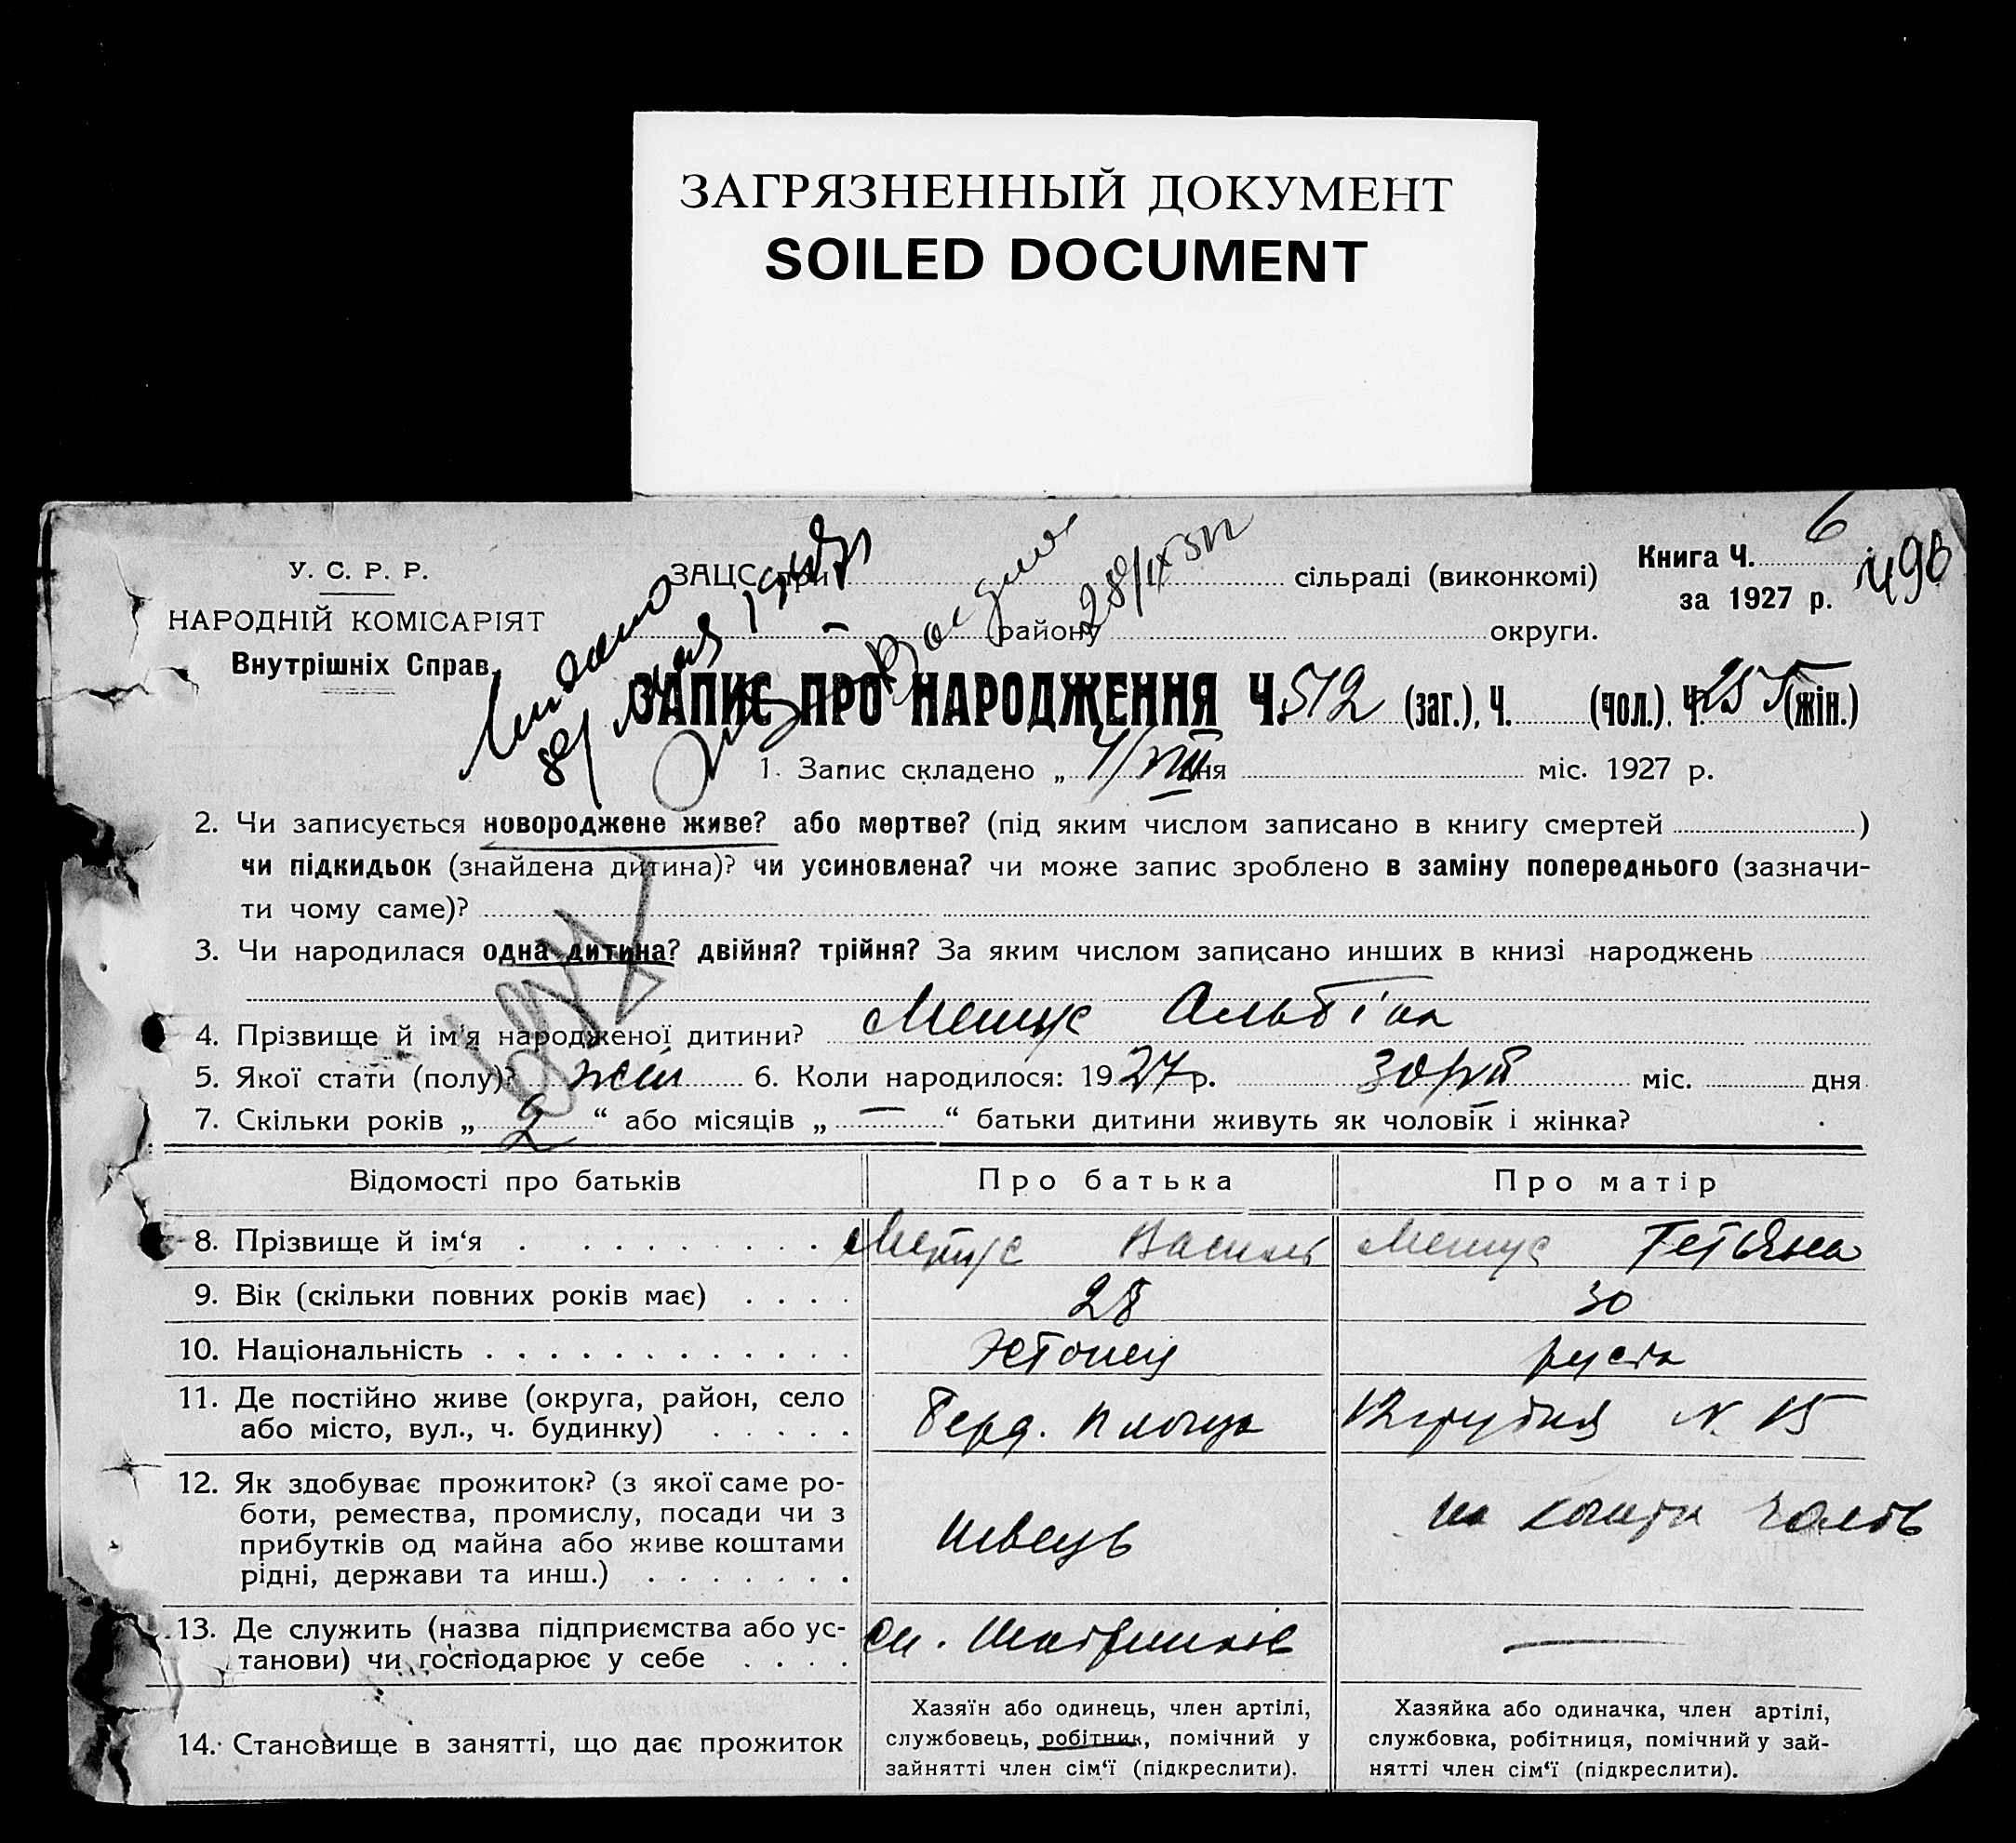 ЗАГРЯЗНЕННЫЙ ДОКУМЕНТ
SOILED DOCUMENT
У. С. Р. Р.
НАРОДНІЙ КОМІСАРІЯТ
Внутрішніх Справ.
ЗАЦС при сільраді (виконкомі)
району округи.
Книга Ч. 6
за 1927 р.
490
28/IX
ЗАПИС ПРО НАРОДЖЕННЯ Ч. 512 (заг.), Ч. (чол.). Ч. 255 (жін.)
1. Запис складено „ 4/VIII дня міс. 1927 р.
2. Чи записується новороджене живе? або мертве? (під яким числом записано в книгу смертей )
чи підкидьок (знайдена дитина)? чи усиновлена? чи може запис зроблено в заміну попереднього (зазначи-
ти чому саме)?
3. Чи народилася одна дитина? двійня? трійня? За яким числом записано инших в книзі народжень
4. Прізвище й ім'я народженої дитини? Альбіна
5. Якої стати (полу)? жін 6. Коли народилося: 1927 р. 30/VII міс. дня
7. Скільки років „ 2 “ або місяців „ — “ батьки дитини живуть як чоловік і жінка?
Відомості про батьків Про батька Про матір
8. Прізвище й ім'я Василь Тетьяна
9. Вік (скільки повних років має) 28 30
10. Національність Эстонец руска
11. Де постійно живе (округа, район, село
або місто, вул., ч. будинку) Берд. площа N. 15
12. Як здобуває прожиток? (з якої саме ро-
боти, ремества, промислу, посади чи з
прибутків од майна або живе коштами
рідні, держави та инш.) швець на кошти
13. Де служить (назва підприємства або ус-
танови) чи господарює у себе —
14. Становище в занятті, що дає прожиток
Хазяїн або одинець, член артілі,
службовець, робітник, помічний у
зайнятті член сім‘ї (підкреслити).
Хазяйка або одиначка, член артілі,
службовка, робітниця, помічний у зай-
нятті член сім‘ї (підкреслити).